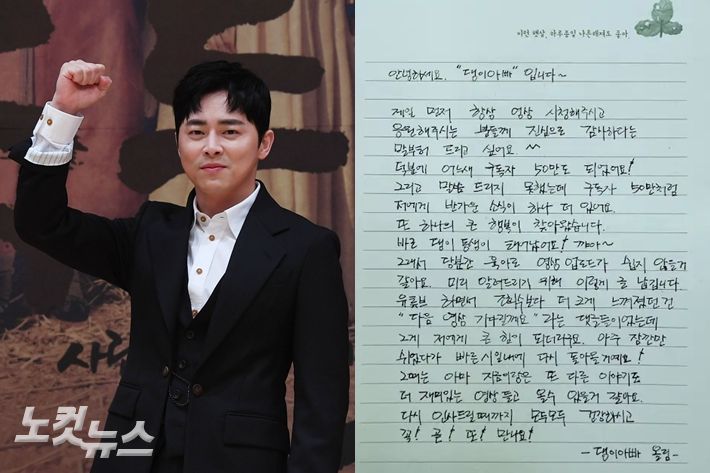 이런 햇살, 하루종일 나른해져도 좋아.
안녕하세요. "댕이아빠" 입니다~
제일 먼저 항상 영상 시청해주시고
응원해주시는 분들께 진심으로 감사하다는
말부터 드리고 싶어요 ~
덕분에 어느새 구독자 50만도 되었어요!
그리고 말씀 드리지 못했는데 구독자 50만처럼
저에게 반가운 소식이 하나 더 있어요.
또 하나의 큰 행복이 찾아왔습니다.
바로 댕이 동생이 태어났어요! 꺄아~
그래서 당분간 육아로 영상 업로드가 쉽지 않을거
같아요. 미리 알려드리기 위해 이렇게 글 남깁니다.
유튜브 하면서 조회수보다 더 크게 느껴졌던 건
"다음 영상 기다릴게요" 라는 댓글들이었는데
그게 저에게 큰 힘이 되더라구요. 아주 잠깐만
쉬었다가 빠른시일내에 다시 돌아올거예요!
그때는 아마 지금이랑은 또 다른 이야기로
더 재미있는 영상 들고 올수 있을거 같아요.
다시 인사드릴때까지 모두모두 건강하시고
꼭! 곧! 또! 만나요!
- 댕이아빠 올림 -
사랑
노컷뉴스